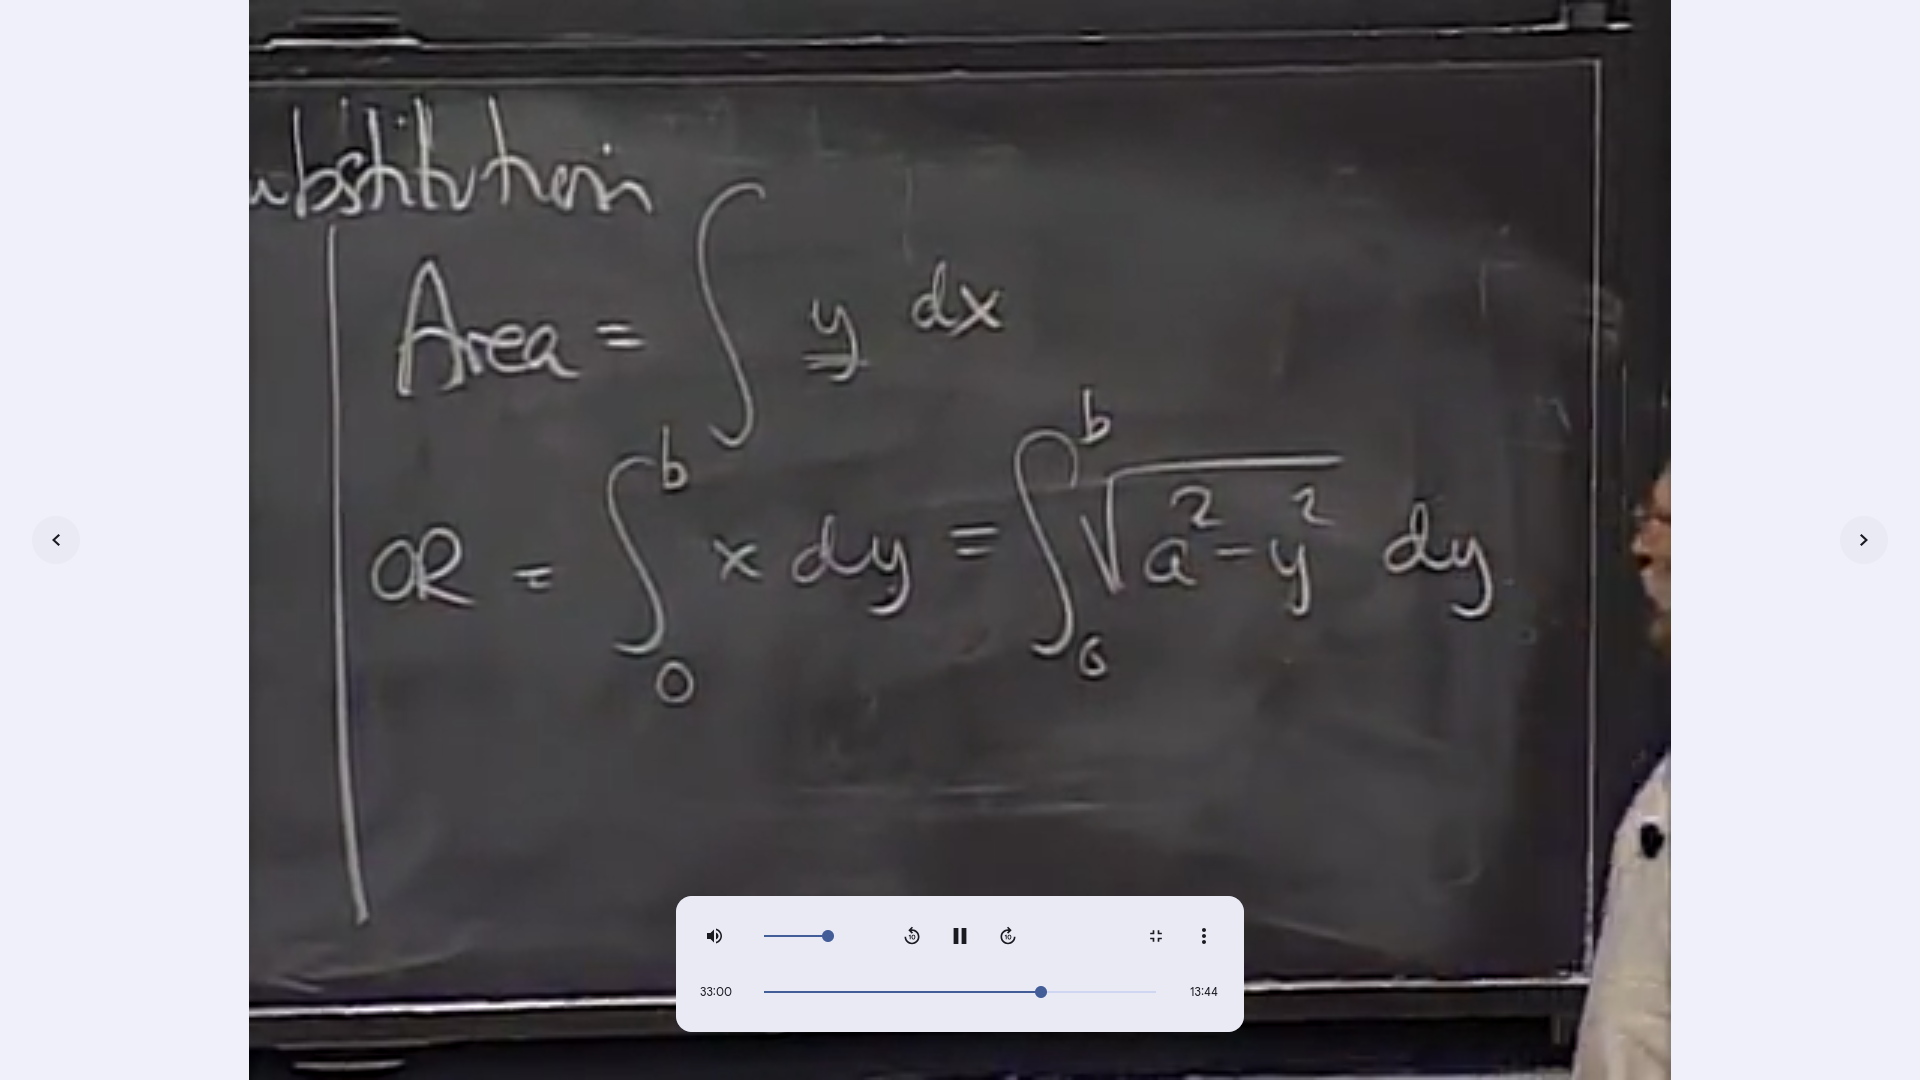 ubstitution
Area = ∫ y dx
OR = ∫₀ᵇ x dy = ∫₀ᵇ √(a² - y²) dy
10 10
33:00 13:44